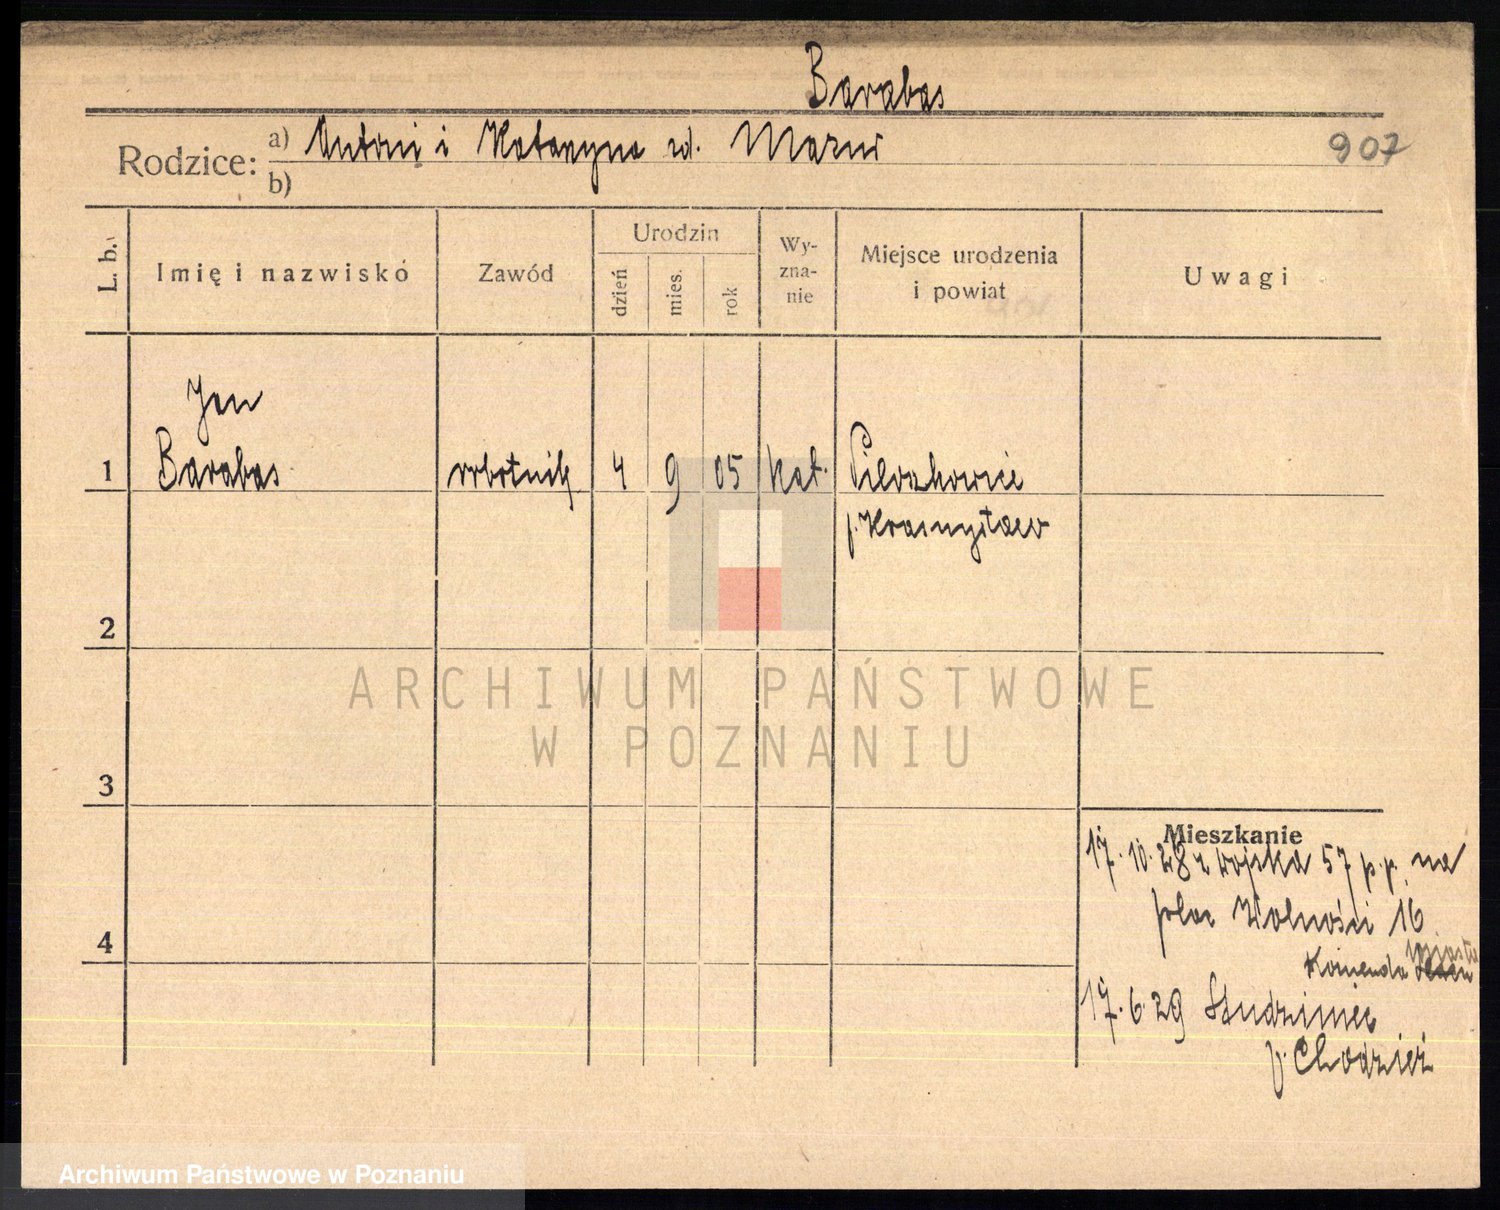 Barabas
Rodzice: a) Antoni i Katarzyna zd. Mazur
907
b)
L. b. Imię i nazwisko Zawód Urodzin dzień mies. rok Wy-zna-nie Miejsce urodzenia i powiat Uwagi
Jan
1 Barabas robotnik 4 9 05 kat.
p. Krasnystaw
2
ARCHIWUM PAŃSTWOWE
W POZNANIU
3
Mieszkanie
17.10.28 z wojska 57 p.p. na
plac Wolności 16
4
Komenda Miasta
17.6.29 Studzieniec
p. Chodzież
Archiwum Państwowe w Poznaniu